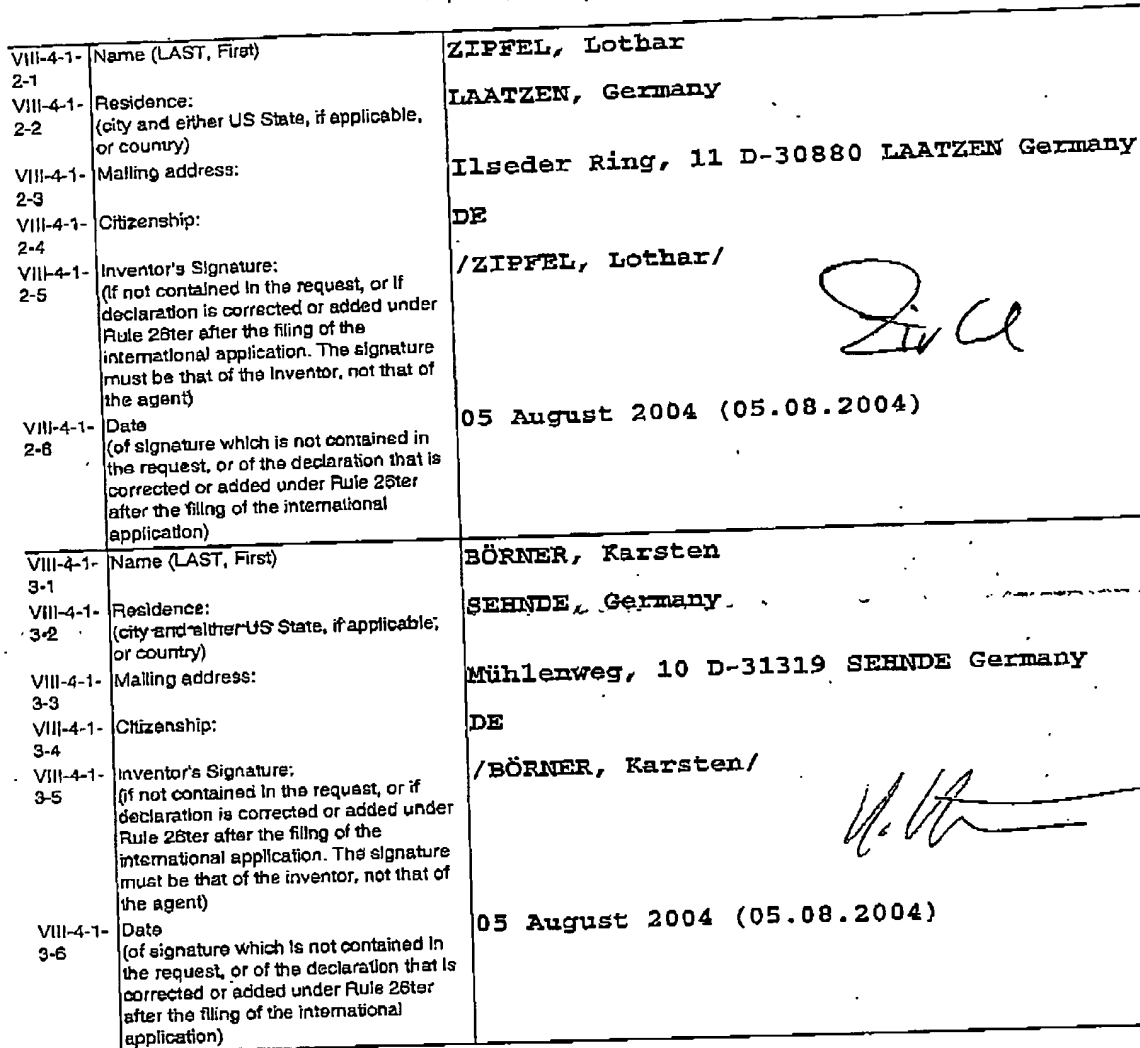 VIII-4-1-2-1 Name (LAST, First) ZIPFEL, Lothar
VIII-4-1-2-2 Residence: LAATZEN, Germany
(city and either US State, if applicable,
or country)
VIII-4-1-2-3 Mailing address: Ilseder Ring, 11 D-30880 LAATZEN Germany
VIII-4-1-2-4 Citizenship: DE
VIII-4-1-2-5 Inventor's Signature: /ZIPFEL, Lothar/
(if not contained in the request, or if
declaration is corrected or added under
Rule 26ter after the filing of the
international application. The signature
must be that of the inventor, not that of
the agent)
VIII-4-1-2-6 Date 05 August 2004 (05.08.2004)
(of signature which is not contained in
the request, or of the declaration that is
corrected or added under Rule 26ter
after the filing of the international
application)
VIII-4-1-3-1 Name (LAST, First) BÖRNER, Karsten
VIII-4-1-3-2 Residence: SEHNDE, Germany
(city and either US State, if applicable,
or country)
VIII-4-1-3-3 Mailing address: Mühlenweg, 10 D-31319 SEHNDE Germany
VIII-4-1-3-4 Citizenship: DE
VIII-4-1-3-5 Inventor's Signature: /BÖRNER, Karsten/
(if not contained in the request, or if
declaration is corrected or added under
Rule 26ter after the filing of the
international application. The signature
must be that of the inventor, not that of
the agent)
VIII-4-1-3-6 Date 05 August 2004 (05.08.2004)
(of signature which is not contained in
the request, or of the declaration that is
corrected or added under Rule 26ter
after the filing of the international
application)